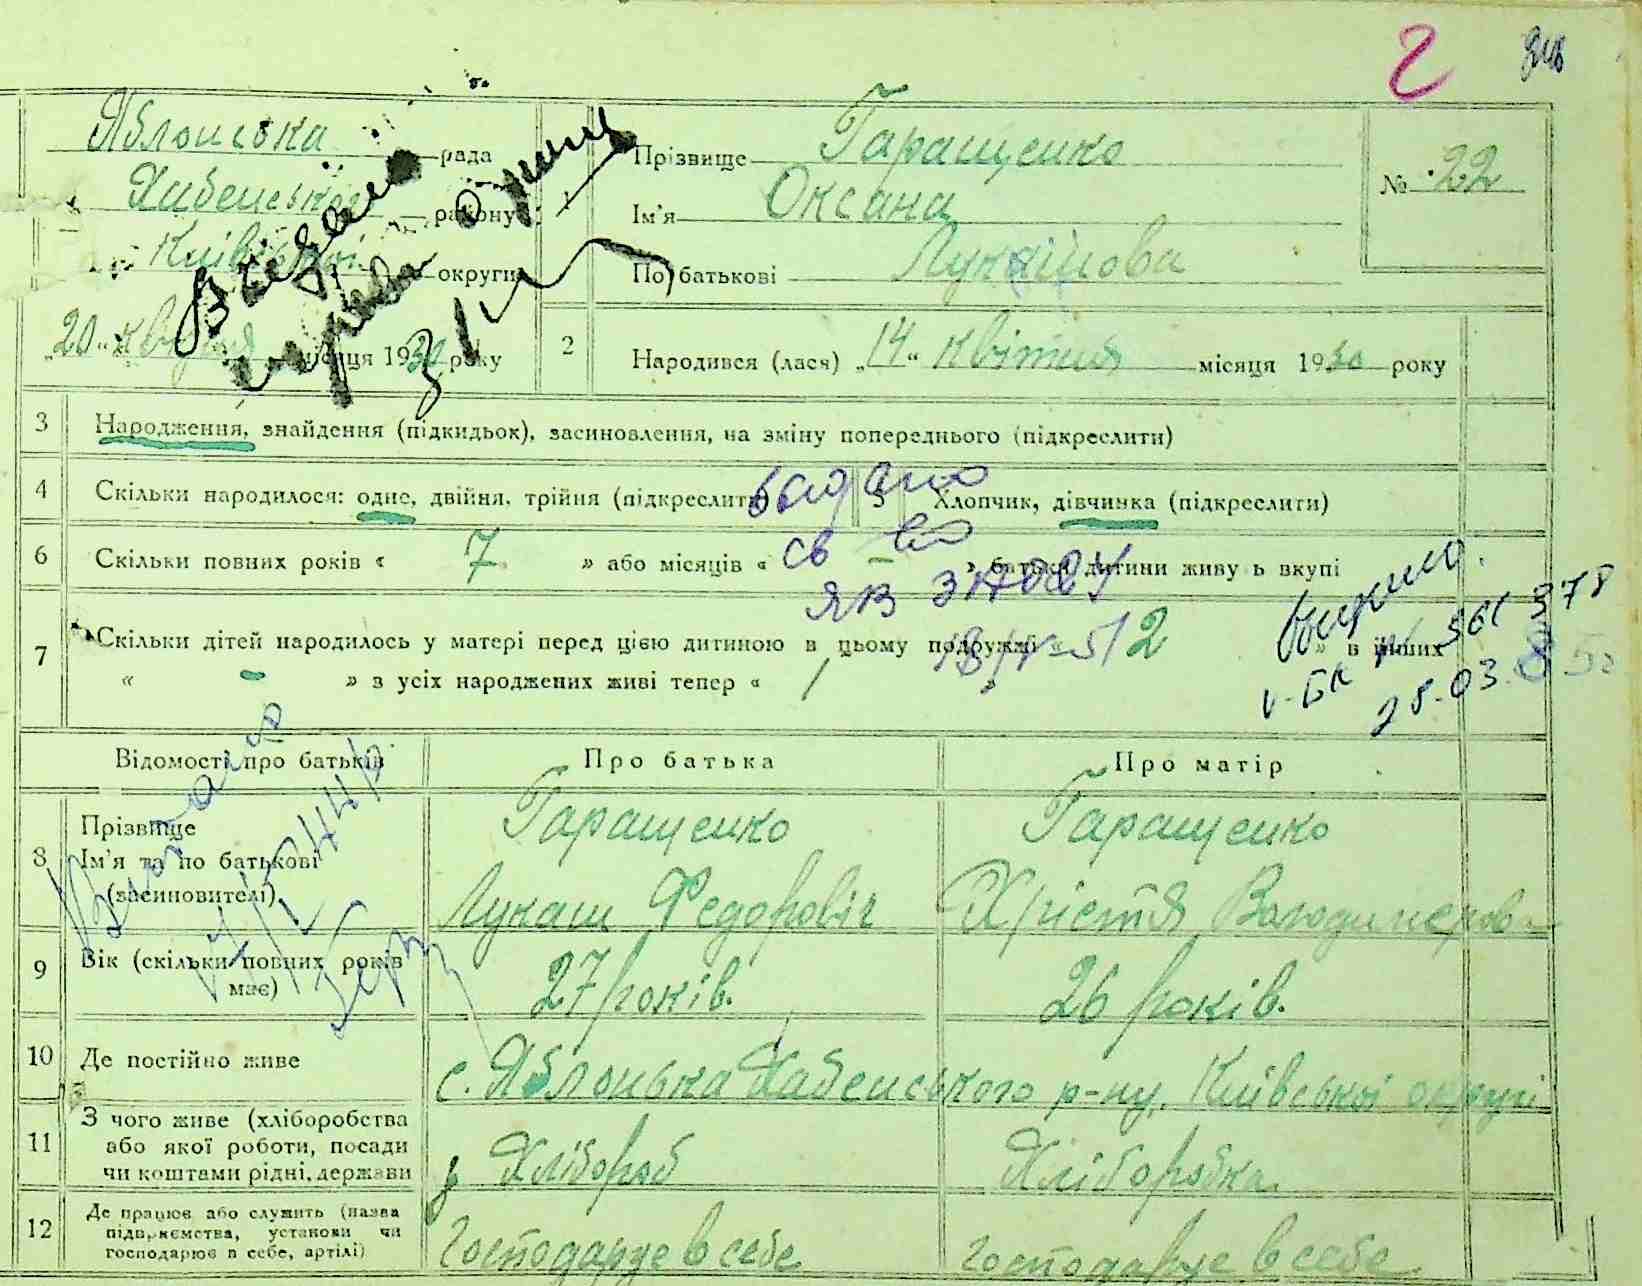 2
Яблонська рада
Хабенського району
Київської округи
„20“ квітня місяця 1930 року
1
Прізвище Гаращенко
Ім'я Оксана
По батькові Лукашова
№ 22
2
Народився (лася) „14“ квітня місяця 1930 року
3
Народження, знайдення (підкидьок), засиновлення, на зміну попереднього (підкреслити)
4
Скільки народилося: одне, двійня, трійня (підкреслити)
5
Хлопчик, дівчинка (підкреслити)
6
Скільки повних років « 7 » або місяців « — » батьки дитини живуть вкупі
7
Скільки дітей народилось у матері перед цією дитиною в цьому подружжі 2 » в інших
« - » з усіх народжених живі тепер « 1 »
знову
378
28.03.85
Відомості про батьків
Про батька
Про матір
8
Прізвище
Ім'я та по батькові
(засиновителі)
Гаращенко
Лукаш Федорович
Гаращенко
Хрістя Володимерова
9
Вік (скільки повних років
має)
27 років.
26 років.
10
Де постійно живе
с. Яблонька Хабенського р-ну, Київської округи
11
З чого живе (хліборобства
або якої роботи, посади
чи коштами рідні, держави
з Хлібороб
Хліборобка
12
Де працює або служить (назва
підприємства, установи чи
господарює в себе, артілі)
Господарує в себе
Господарує в себе